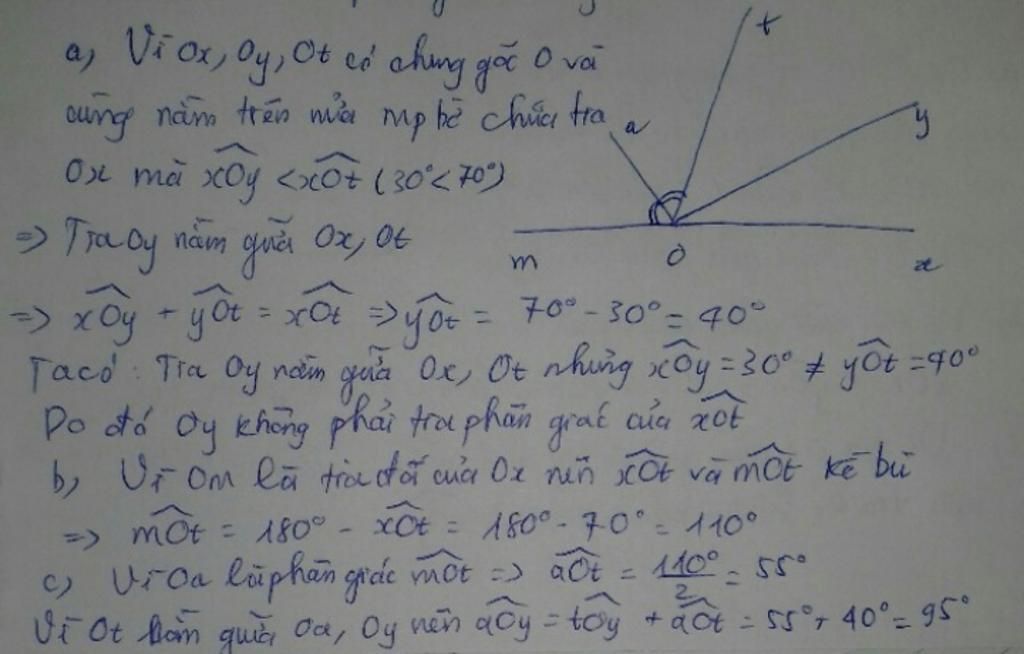 a, Vì Ox, Oy, Ot có chung gốc O và
cùng nằm trên nửa mp bờ chứa tia
Ox mà xOy < xOt (30° < 70°)
=> Tia Oy nằm giữa Ox, Ot
t
a
y
m
O
x
=> xOy + yOt = xOt => yOt = 70° - 30° = 40°
Ta có: Tia Oy nằm giữa Ox, Ot nhưng xOy = 30° ≠ yOt = 40°
Do đó Oy không phải tia phân giác của xOt
b, Vì Om là tia đối của Ox nên xOt và mOt kề bù
=> mOt = 180° - xOt = 180° - 70° = 110°
c, Vì Oa là phân giác mOt => aOt = 110°/2 = 55°
Vì Ot nằm giữa Oa, Oy nên aOy = tOy + aOt = 55° + 40° = 95°